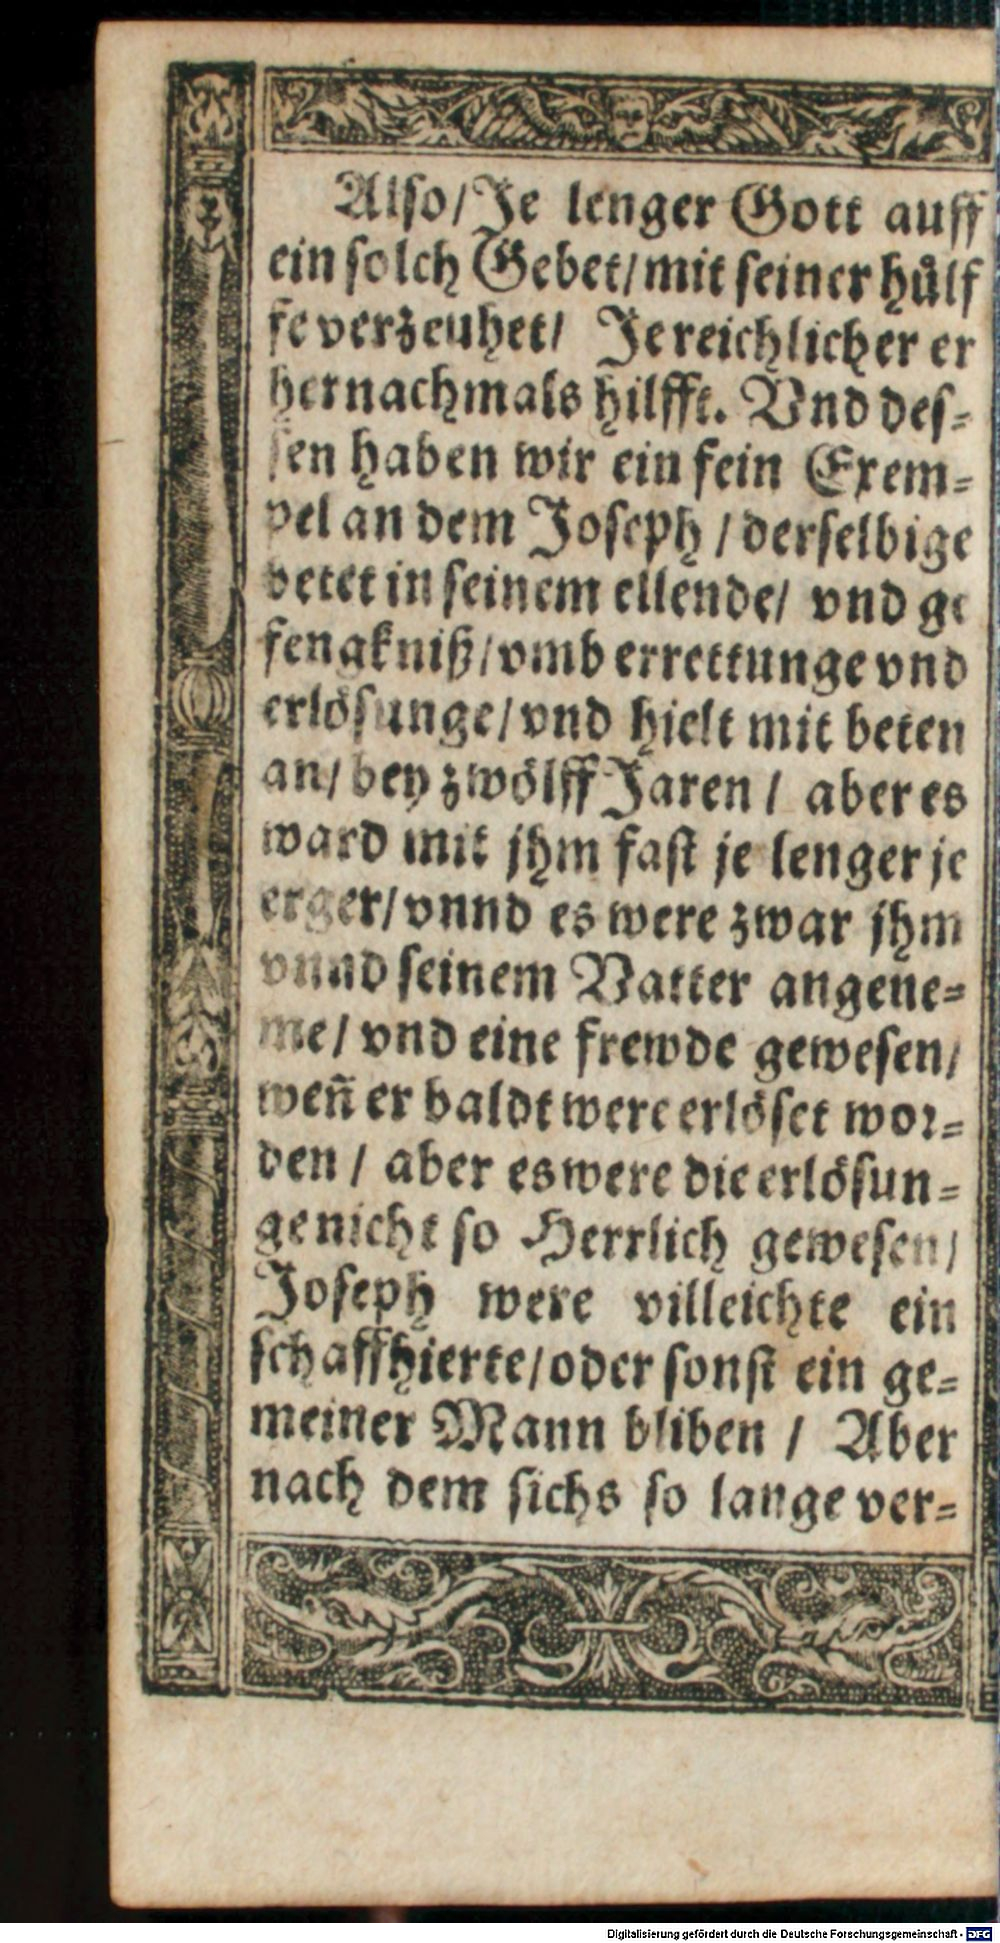 Also/Je lenger Gott auff
ein solch Gebet/mit seiner hůlf
fe verzeuhet/ Je reichlicher er
hernachmals hilfft. Vnd des-
sen haben wir ein fein Exem-
pel an dem Joseph / derselbige
betet in seinem ellende/ vnd ge
fengkniß/vmb errettunge vnd
erlösunge/vnd hielt mit beten
an/bey zwölff Jaren / aber es
ward mit jhm fast je lenger je
erger/vnnd es were zwar jhm
vnnd seinem Vatter angene-
me/ vnd eine frewde gewesen/
wen̄ er baldt were erlöset wor-
den / aber es were die erlösun-
ge nicht so Herrlich gewesen/
Joseph were villeichte ein
schaffhierte/oder sonst ein ge-
meiner Mann bliben / Aber
nach dem sichs so lange ver-
Digitalisierung gefördert durch die Deutsche Forschungsgemeinschaft - DFG